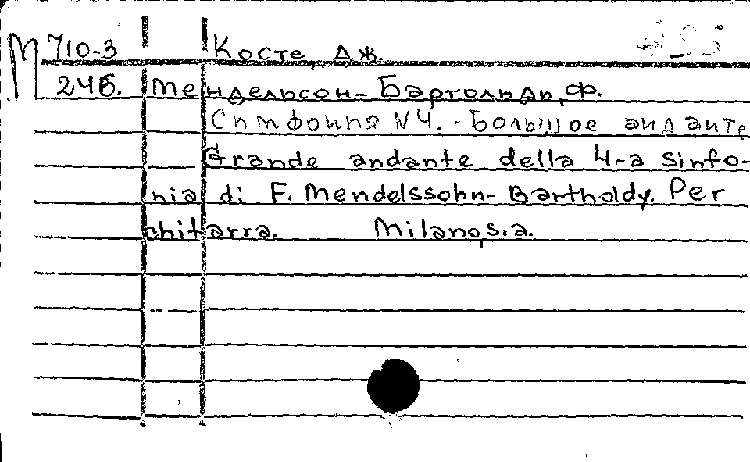 М 710-3 Косте, Дж.
246. Мендельсон-Бартольди, Ф.
Симфония N4. - Большое анданте
Grande andante della 4-a sinfo-
nia di F. Mendelssohn-Bartholdy. Per
chitarra. Milano, s.a.